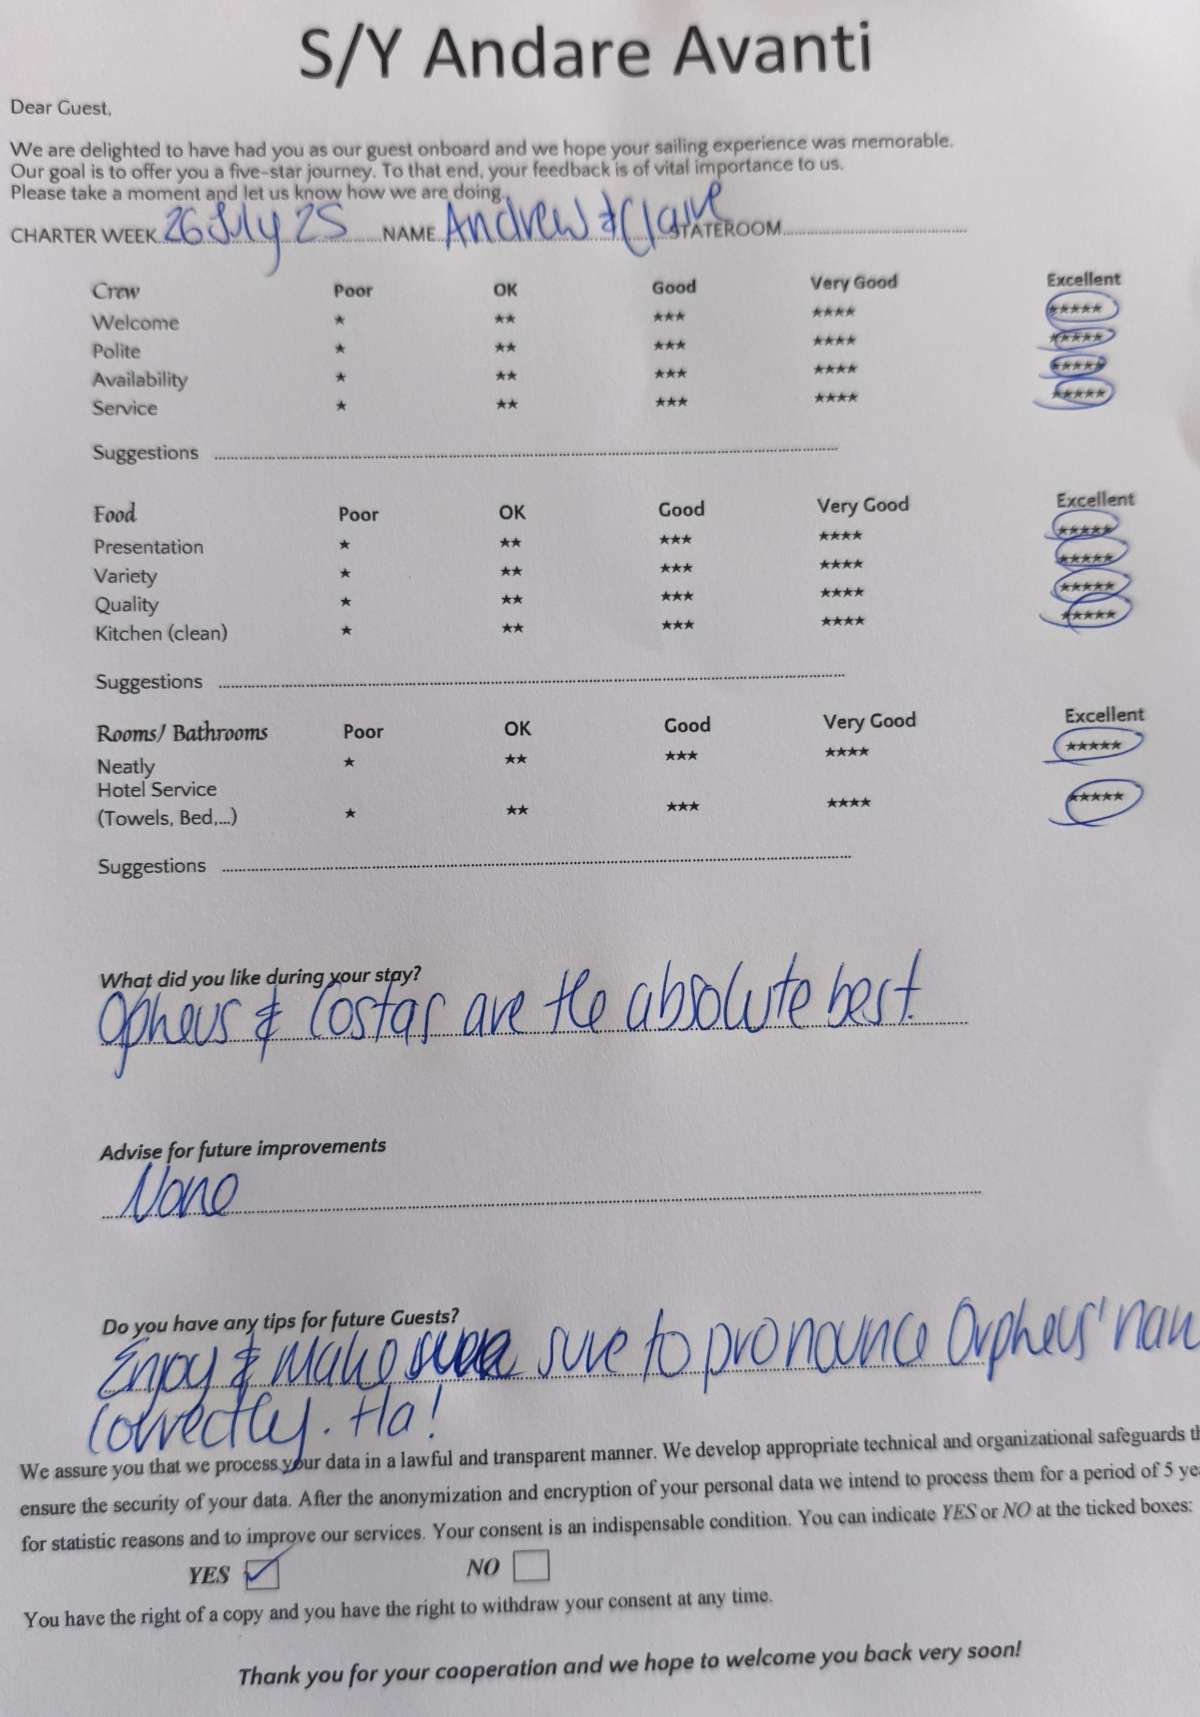 S/Y Andare Avanti
Dear Guest,
We are delighted to have had you as our guest onboard and we hope your sailing experience was memorable.
Our goal is to offer you a five-star journey. To that end, your feedback is of vital importance to us.
Please take a moment and let us know how we are doing.
CHARTER WEEK 26 July 25 NAME Andrew & Claire STATEROOM
Crew Poor OK Good Very Good Excellent
Welcome ★ ★★ ★★★ ★★★★ ★★★★★
Polite ★ ★★ ★★★ ★★★★ ★★★★★
Availability ★ ★★ ★★★ ★★★★ ★★★★★
Service ★ ★★ ★★★ ★★★★ ★★★★★
Suggestions
Food Poor OK Good Very Good Excellent
Presentation ★ ★★ ★★★ ★★★★ ★★★★★
Variety ★ ★★ ★★★ ★★★★ ★★★★★
Quality ★ ★★ ★★★ ★★★★ ★★★★★
Kitchen (clean) ★ ★★ ★★★ ★★★★ ★★★★★
Suggestions
Rooms/ Bathrooms Poor OK Good Very Good Excellent
Neatly ★ ★★ ★★★ ★★★★ ★★★★★
Hotel Service
(Towels, Bed,...) ★ ★★ ★★★ ★★★★ ★★★★★
Suggestions
What did you like during your stay?
Opheus & Costas are the absolute best.
Advise for future improvements
None
Do you have any tips for future Guests?
Enjoy & make sure to pronounce Orpheus' nam
correctly. Ha!
We assure you that we process your data in a lawful and transparent manner. We develop appropriate technical and organizational safeguards th
ensure the security of your data. After the anonymization and encryption of your personal data we intend to process them for a period of 5 yea
for statistic reasons and to improve our services. Your consent is an indispensable condition. You can indicate YES or NO at the ticked boxes:
YES NO
You have the right of a copy and you have the right to withdraw your consent at any time.
Thank you for your cooperation and we hope to welcome you back very soon!